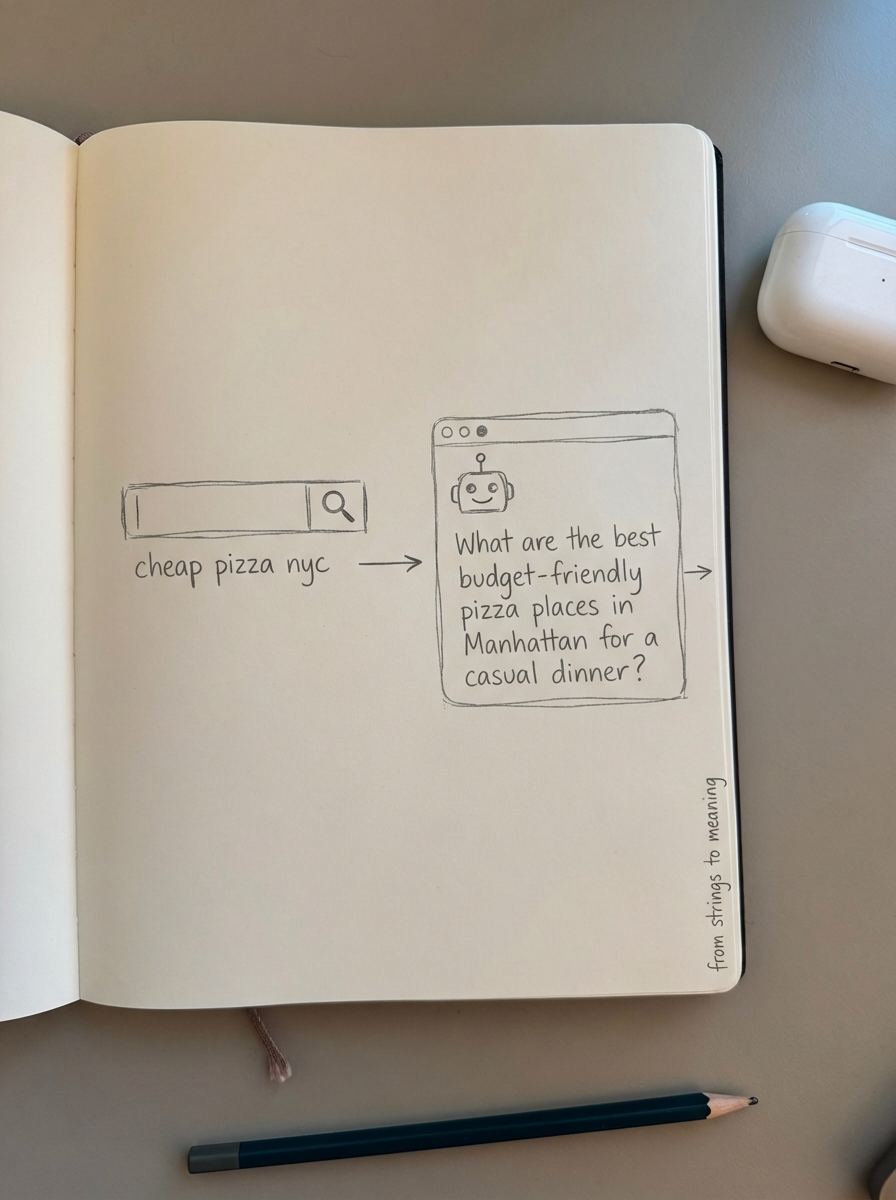 cheap pizza nyc
What are the best
budget-friendly
pizza places in
Manhattan for a
casual dinner?
from strings to meaning